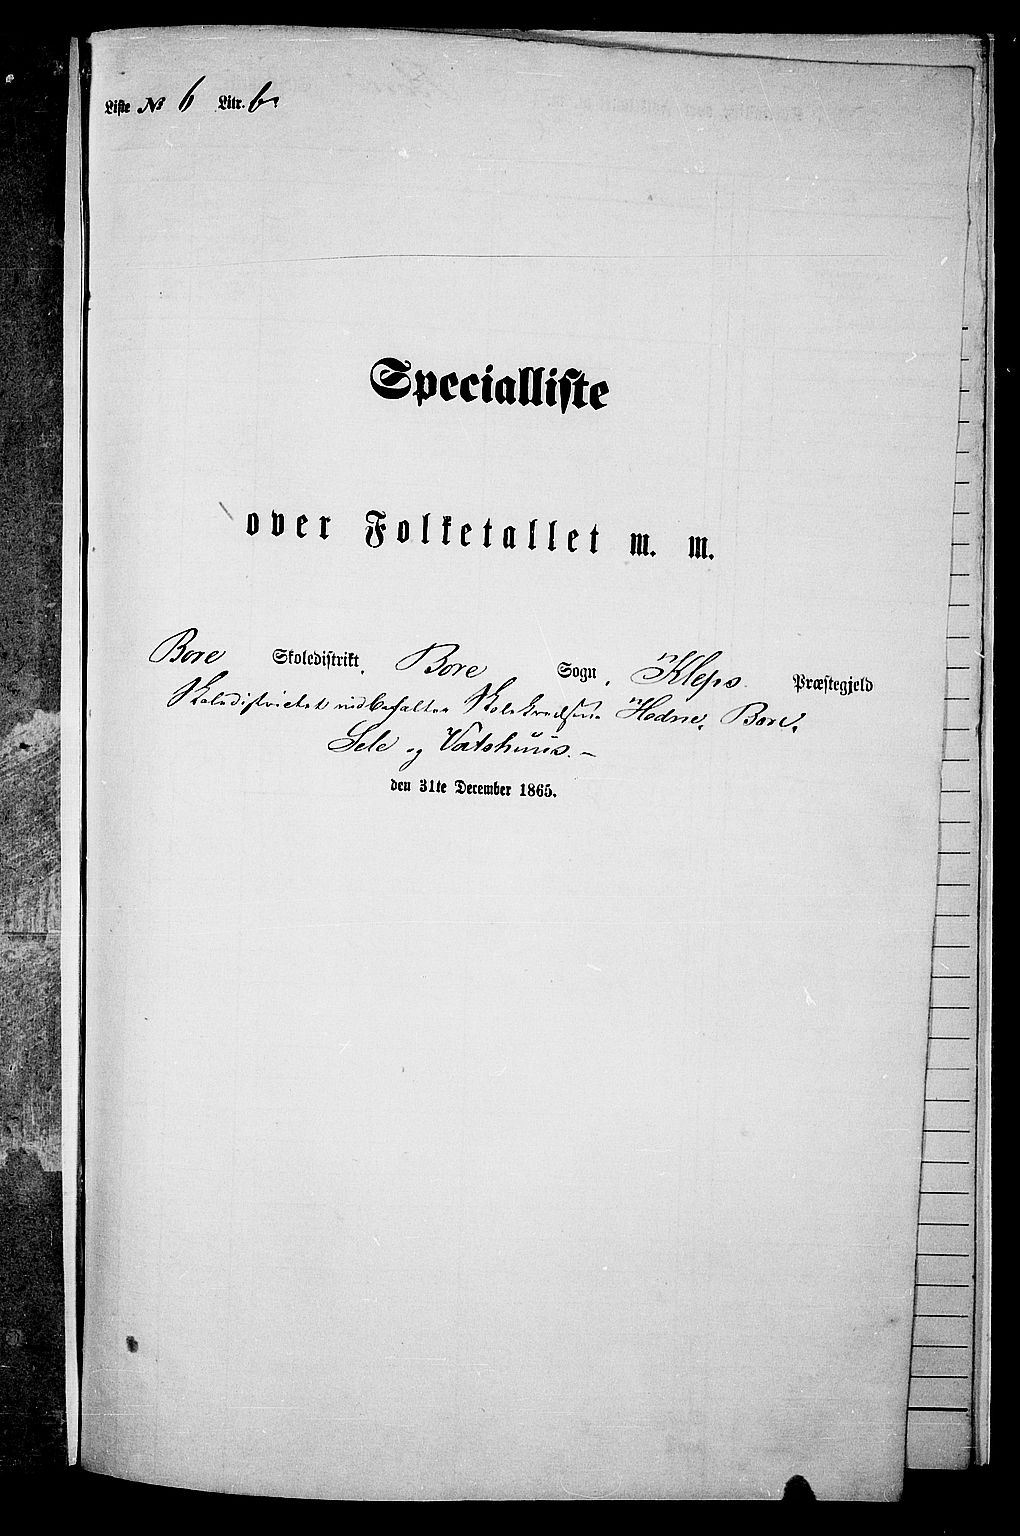 Liste № 6 Litr. b.
Specialliste
over Folketallet m. m.
Bore Skoledistrikt, Bore Sogn, Kleps Præstegjeld
Skoledistrictet indbefatter Skolekredsene Hodne, Bore,
Sele og Vatshuus. –
den 31te December 1865.